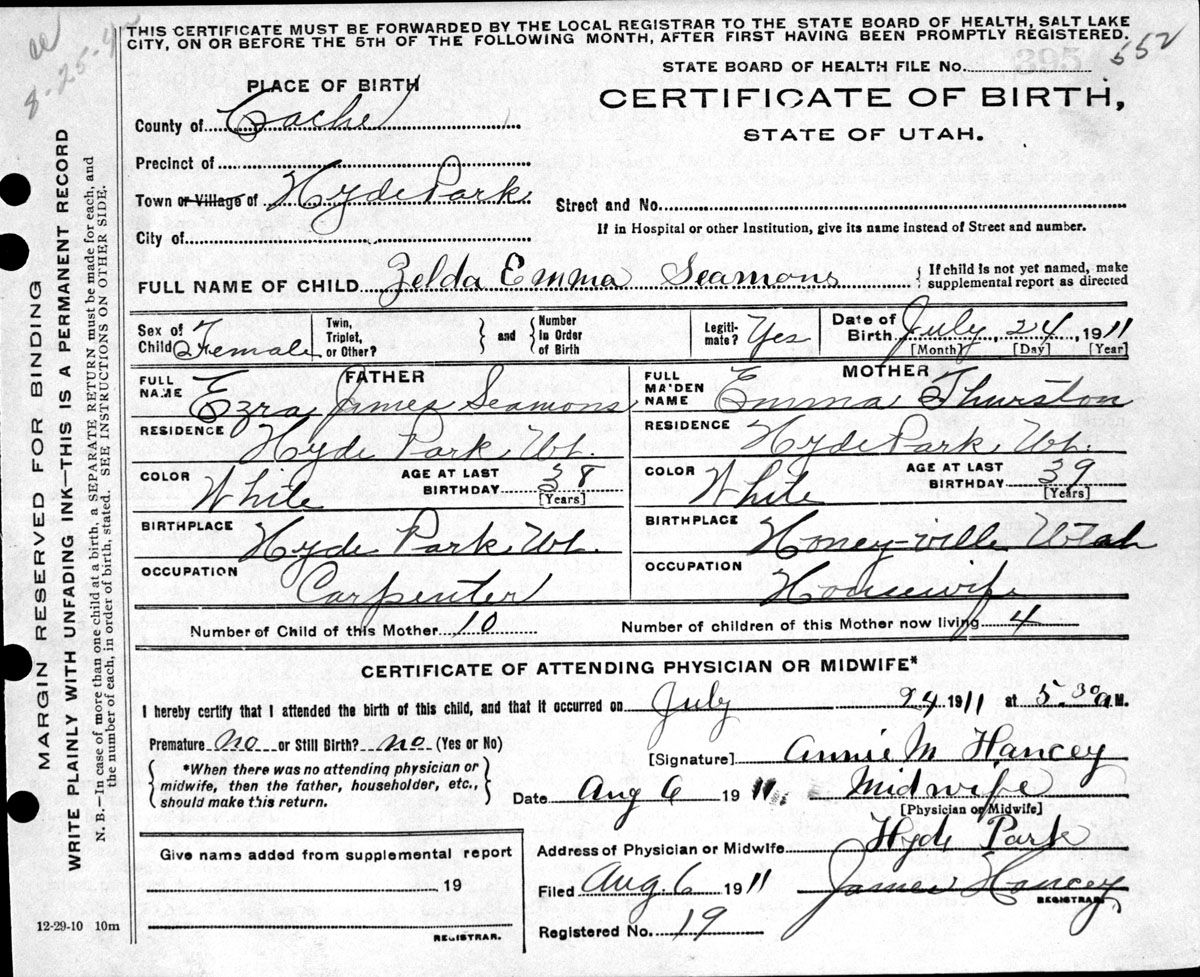 THIS CERTIFICATE MUST BE FORWARDED BY THE LOCAL REGISTRAR TO THE STATE BOARD OF HEALTH, SALT LAKE
CITY, ON OR BEFORE THE 5TH OF THE FOLLOWING MONTH, AFTER FIRST HAVING BEEN PROMPTLY REGISTERED.
552
8-25-4
STATE BOARD OF HEALTH FILE No.
395
PLACE OF BIRTH
CERTIFICATE OF BIRTH,
STATE OF UTAH.
County of Cache
Precinct of
Town or Village of Hyde Park
Street and No.
City of
If in Hospital or other Institution, give its name instead of Street and number.
FULL NAME OF CHILD Zelda Emma Seamons { If child is not yet named, make supplemental report as directed
Sex of Child Female Twin, Triplet, or Other? } and { Number in Order of Birth Legiti-mate? Yes Date of Birth July 24 1911
[Month] [Day] [Year]
FATHER MOTHER
FULL NAME Ezra James Seamons FULL MAIDEN NAME Emma Thurston
RESIDENCE Hyde Park Ut. RESIDENCE Hyde Park Ut.
COLOR White AGE AT LAST BIRTHDAY 38 [Years] COLOR White AGE AT LAST BIRTHDAY 39 [Years]
BIRTHPLACE Hyde Park Ut. BIRTHPLACE Honey-ville Utah
OCCUPATION Carpenter OCCUPATION Housewife
Number of Child of this Mother 10 Number of children of this Mother now living 4
CERTIFICATE OF ATTENDING PHYSICIAN OR MIDWIFE*
I hereby certify that I attended the birth of this child, and that it occurred on July 24 1911 at 5 30 a M.
Premature no or Still Birth? no (Yes or No)
[Signature] Annie M Hancey
{ *When there was no attending physician or
midwife, then the father, householder, etc.,
should make this return. }
Date Aug 6 1911 Midwife
[Physician or Midwife]
Give name added from supplemental report
Address of Physician or Midwife Hyde Park
19
Filed Aug. 6 1911 James Hancey
REGISTRAR.
12-29-10 10m
REGISTRAR.
Registered No. 19
MARGIN RESERVED FOR BINDING
WRITE PLAINLY WITH UNFADING INK—THIS IS A PERMANENT RECORD
N. B.—In case of more than one child at a birth, a SEPARATE RETURN must be made for each, and
the number of each, in order of birth, stated. SEE INSTRUCTIONS ON OTHER SIDE.